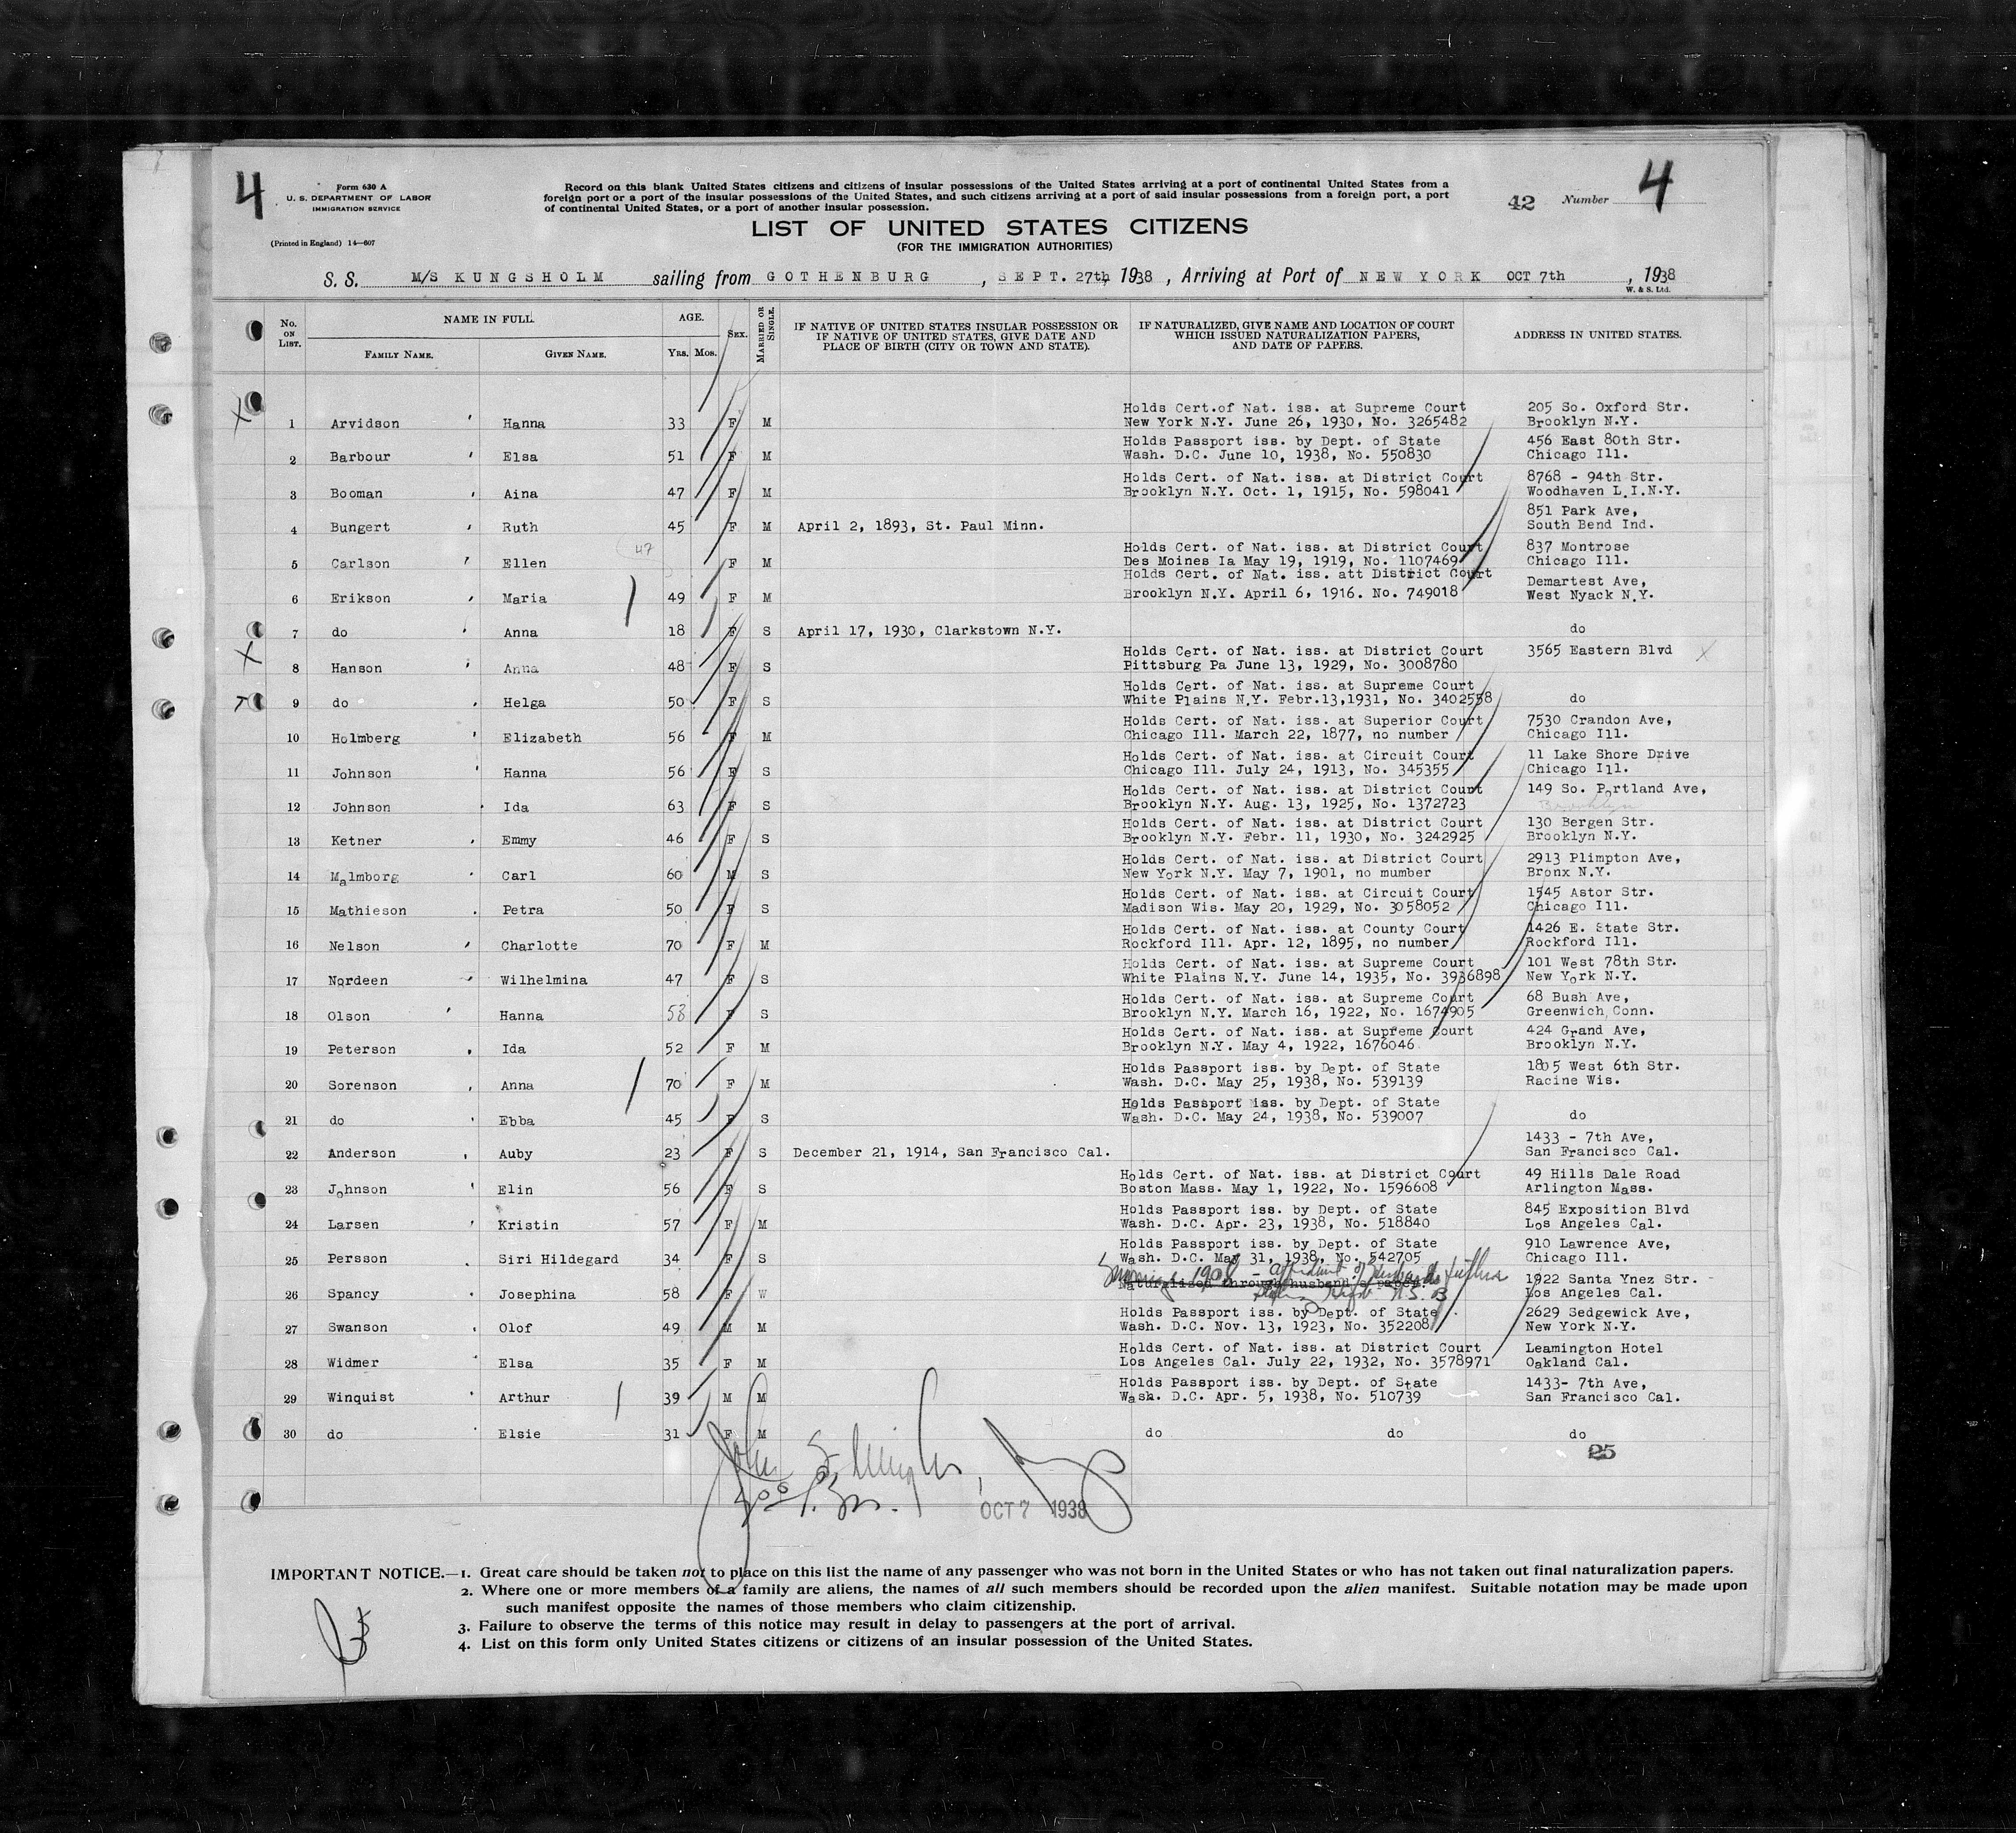 4
Form 630 A
U. S. DEPARTMENT OF LABOR
IMMIGRATION SERVICE
(Printed in England) 14—607
Record on this blank United States citizens and citizens of insular possessions of the United States arriving at a port of continental United States from a
foreign port or a port of the insular possessions of the United States, and such citizens arriving at a port of said insular possessions from a foreign port, a port
of continental United States, or a port of another insular possession.
42 Number 4
LIST OF UNITED STATES CITIZENS
(FOR THE IMMIGRATION AUTHORITIES)
S. S. M/S KUNGSHOLM sailing from GOTHENBURG, SEPT. 27th, 1938, Arriving at Port of NEW YORK OCT 7th, 1938
W. & S. Ltd.
No. ON LIST. NAME IN FULL. FAMILY NAME. GIVEN NAME. AGE. YRS. MOS. SEX. MARRIED OR SINGLE. IF NATIVE OF UNITED STATES INSULAR POSSESSION OR IF NATIVE OF UNITED STATES, GIVE DATE AND PLACE OF BIRTH (CITY OR TOWN AND STATE). IF NATURALIZED, GIVE NAME AND LOCATION OF COURT WHICH ISSUED NATURALIZATION PAPERS, AND DATE OF PAPERS. ADDRESS IN UNITED STATES.
Holds Cert.of Nat. iss. at Supreme Court 205 So. Oxford Str.
X 1 Arvidson Hanna 33 F M New York N.Y. June 26, 1930, No. 3265482 Brooklyn N.Y.
Holds Passport iss. by Dept. of State 456 East 80th Str.
2 Barbour Elsa 51 F M Wash. D.C. June 10, 1938, No. 550830 Chicago Ill.
Holds Cert. of Nat. iss. at District Court 8768 - 94th Str.
3 Booman Aina 47 F M Brooklyn N.Y. Oct. 1, 1915, No. 598041 Woodhaven L.I.N.Y.
851 Park Ave,
4 Bungert Ruth 45 F M April 2, 1893, St. Paul Minn. South Bend Ind.
47 Holds Cert. of Nat. iss. at District Court 837 Montrose
5 Carlson Ellen F M Des Moines Ia May 19, 1919, No. 1107469 Chicago Ill.
Holds Cert. of Nat. iss. att District Court Demartest Ave,
6 Erikson Maria 49 F M Brooklyn N.Y. April 6, 1916. No. 749018 West Nyack N.Y.
7 do Anna 18 F S April 17, 1930, Clarkstown N.Y. do
Holds Cert. of Nat. iss. at District Court 3565 Eastern Blvd X
X 8 Hanson Anna 48 F S Pittsburg Pa June 13, 1929, No. 3008780
Holds Cert. of Nat. iss. at Supreme Court
9 do Helga 50 F S White Plains N.Y. Febr.13,1931, No. 3402558 do
Holds Cert. of Nat. iss. at Superior Court 7530 Crandon Ave,
10 Holmberg Elizabeth 56 F M Chicago Ill. March 22, 1877, no number Chicago Ill.
Holds Cert. of Nat. iss. at Circuit Court 11 Lake Shore Drive
11 Johnson Hanna 56 F S Chicago Ill. July 24, 1913, No. 345355 Chicago Ill.
Holds Cert. of Nat. iss. at District Court 149 So. Portland Ave,
12 Johnson Ida 63 F S Brooklyn N.Y. Aug. 13, 1925, No. 1372723 Brooklyn
Holds Cert. of Nat. iss. at District Court 130 Bergen Str.
13 Ketner Emmy 46 F S Brooklyn N.Y. Febr. 11, 1930, No. 3242925 Brooklyn N.Y.
Holds Cert. of Nat. iss. at District Court 2913 Plimpton Ave,
14 Malmborg Carl 60 M S New York N.Y. May 7, 1901, no mumber Bronx N.Y.
Holds Cert. of Nat. iss. at Circuit Court 1545 Astor Str.
15 Mathieson Petra 50 F S Madison Wis. May 20, 1929, No. 3058052 Chicago Ill.
Holds Cert. of Nat. iss. at County Court 1426 E. State Str.
16 Nelson Charlotte 70 F M Rockford Ill. Apr. 12, 1895, no number Rockford Ill.
Holds Cert. of Nat. iss. at Supreme Court 101 West 78th Str.
17 Nordeen Wilhelmina 47 F S White Plains N.Y. June 14, 1935, No. 3936898 New York N.Y.
Holds Cert. of Nat. iss. at Supreme Court 68 Bush Ave,
18 Olson Hanna 58 F S Brooklyn N.Y. March 16, 1922, No. 1674905 Greenwich, Conn.
Holds Cert. of Nat. iss. at Supreme Court 424 Grand Ave,
19 Peterson Ida 52 F M Brooklyn N.Y. May 4, 1922, 1676046 Brooklyn N.Y.
Holds Passport iss. by Dept. of State 1805 West 6th Str.
20 Sorenson Anna 70 F M Wash. D.C. May 25, 1938, No. 539139 Racine Wis.
Holds Passport iss. by Dept. of State
21 do Ebba 45 F S Wash. D.C. May 24, 1938, No. 539007 do
1433 - 7th Ave,
22 Anderson Auby 23 F S December 21, 1914, San Francisco Cal. San Francisco Cal.
Holds Cert. of Nat. iss. at District Court 49 Hills Dale Road
23 Johnson Elin 56 F S Boston Mass. May 1, 1922, No. 1596608 Arlington Mass.
Holds Passport iss. by Dept. of State 845 Exposition Blvd
24 Larsen Kristin 57 F M Wash. D.C. Apr. 23, 1938, No. 518840 Los Angeles Cal.
Holds Passport iss. by Dept. of State 910 Lawrence Ave,
25 Persson Siri Hildegard 34 F S Wash. D.C. May 31, 1938, No. 542705 Chicago Ill.
Naturalised through husband papers 1922 Santa Ynez Str.
26 Spancy Josephina 58 F W Los Angeles Cal.
Holds Passport iss. by Dept. of State 2629 Sedgewick Ave,
27 Swanson Olof 49 M M Wash. D.C. Nov. 13, 1923, No. 352208 New York N.Y.
Holds Cert. of Nat. iss. at District Court Leamington Hotel
28 Widmer Elsa 35 F M Los Angeles Cal. July 22, 1932, No. 3578971 Oakland Cal.
Holds Passport iss. by Dept. of State 1433- 7th Ave,
29 Winquist Arthur 39 M M Wash. D.C. Apr. 5, 1938, No. 510739 San Francisco Cal.
30 do Elsie 31 F M do do do
25
OCT 7 1938
IMPORTANT NOTICE.—1. Great care should be taken not to place on this list the name of any passenger who was not born in the United States or who has not taken out final naturalization papers.
2. Where one or more members of a family are aliens, the names of all such members should be recorded upon the alien manifest. Suitable notation may be made upon
such manifest opposite the names of those members who claim citizenship.
3. Failure to observe the terms of this notice may result in delay to passengers at the port of arrival.
4. List on this form only United States citizens or citizens of an insular possession of the United States.